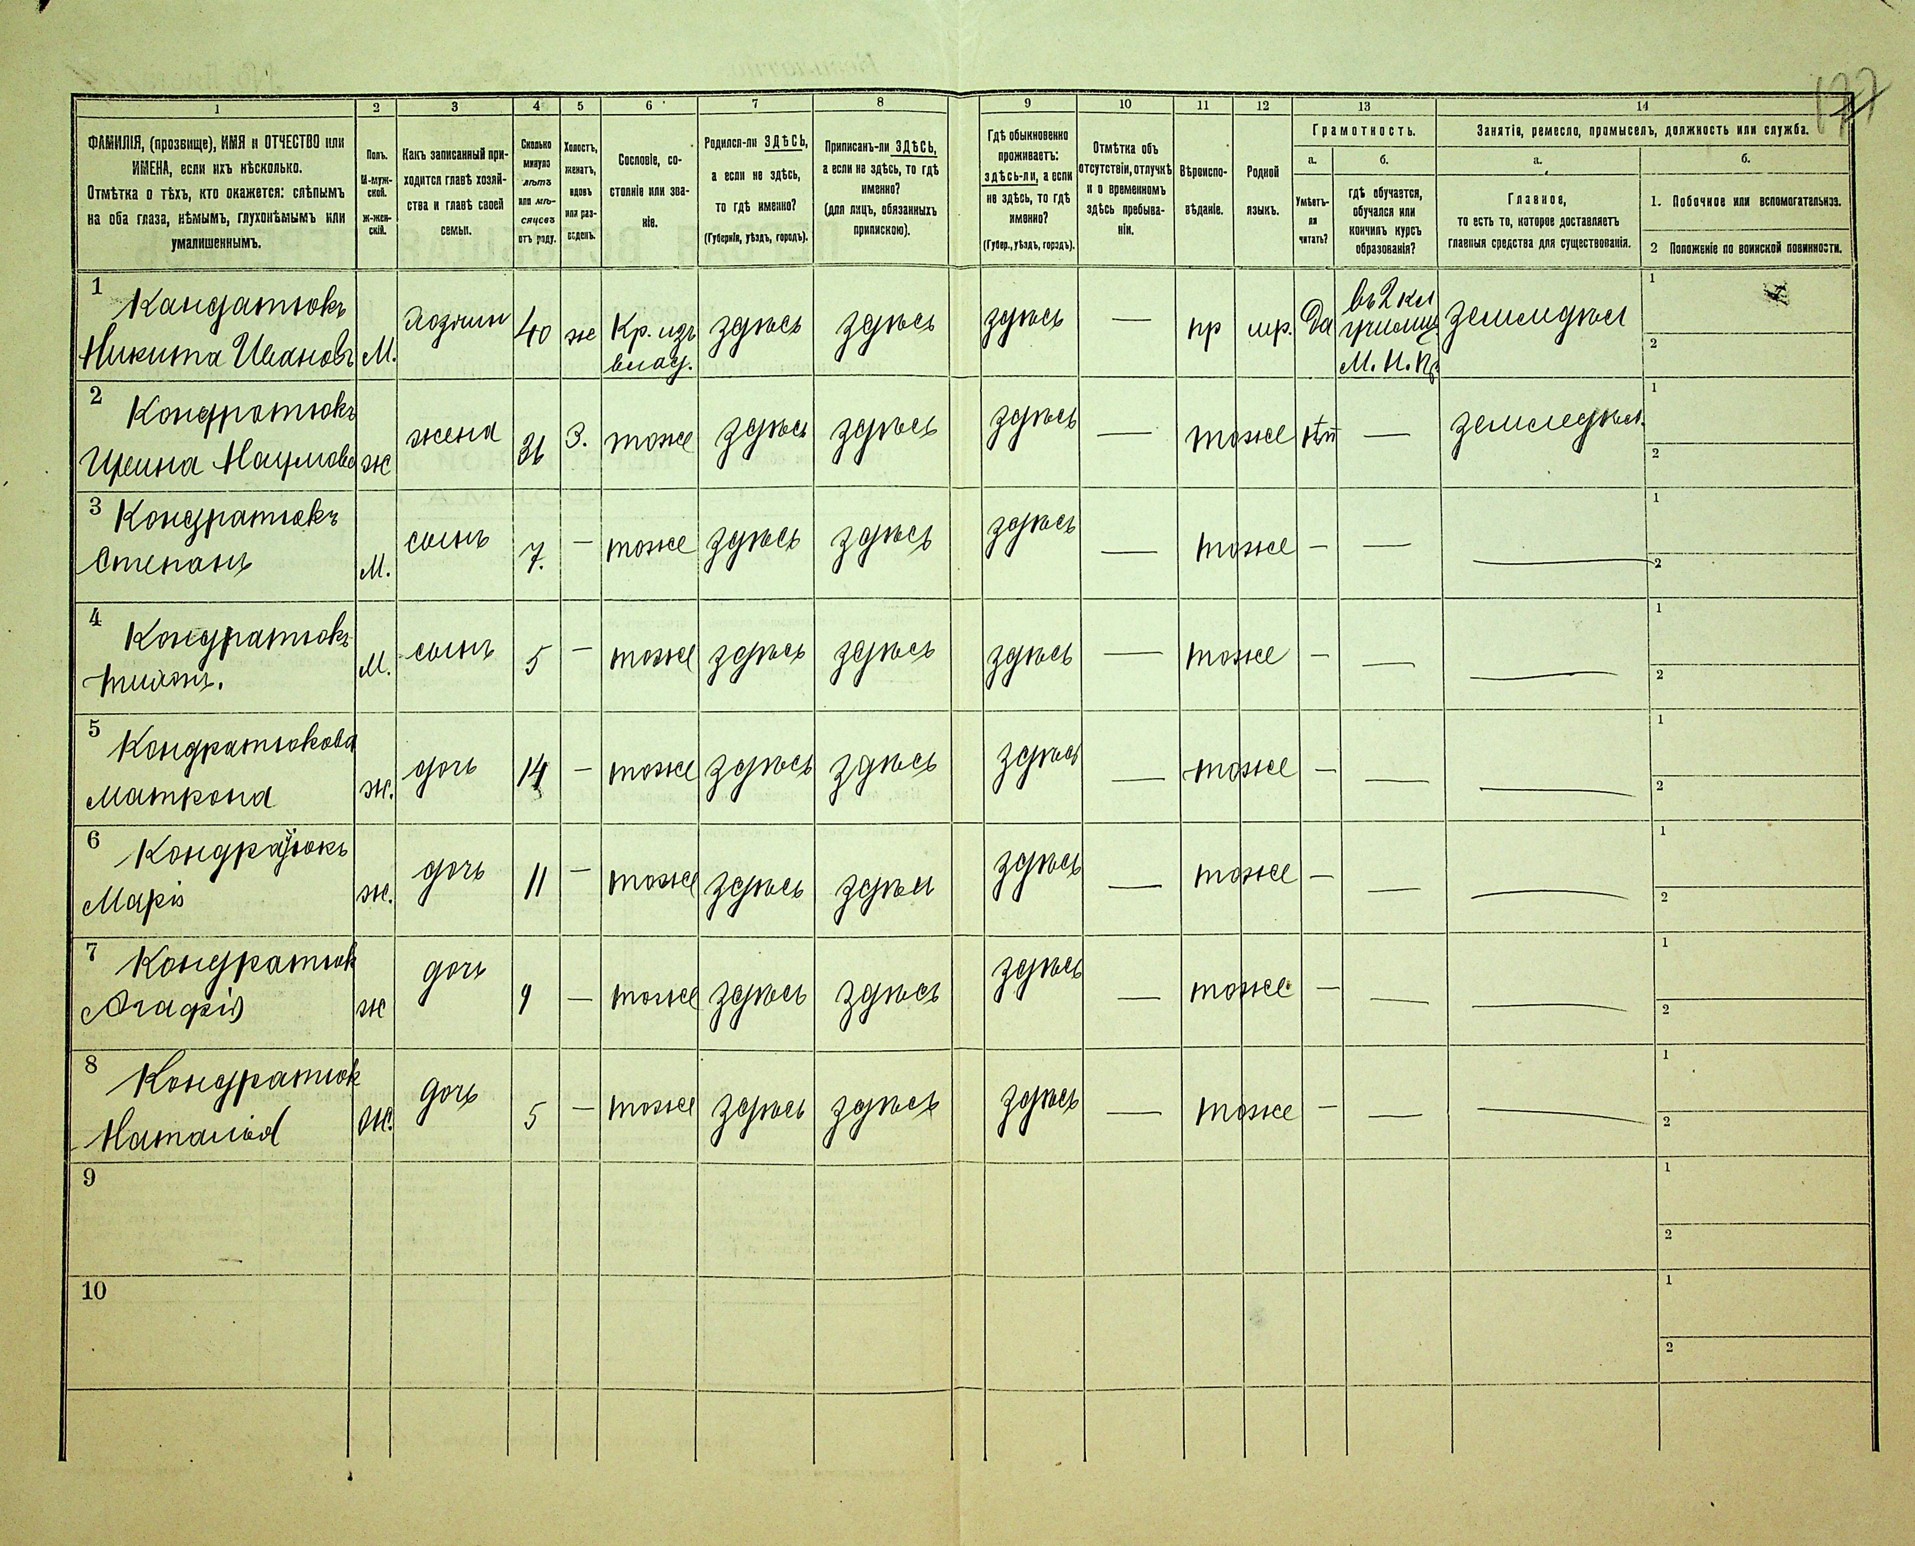 177
1 2 3 4 5 6 7 8 9 10 11 12 13 14
ФАМИЛІЯ, (прозвище), ИМЯ и ОТЧЕСТВО или
ИМЕНА, если ихъ нѣсколько.
Отмѣтка о тѣхъ, кто окажется: слѣпымъ
на оба глаза, нѣмымъ, глухонѣмымъ или
умалишеннымъ.
Полъ.
М-муж-
ской.
Ж-жен-
скій.
Какъ записанный при-
ходится главѣ хозяй-
ства и главѣ своей
семьи.
Сколько
минуло
лѣтъ
или мѣ-
сяцевъ
отъ роду.
Холостъ,
женатъ,
вдовъ
или раз-
веденъ.
Сословіе, со-
стояніе или зва-
ніе.
Родился-ли ЗДѢСЬ,
а если не здѣсь,
то гдѣ именно?
(Губернія, уѣздъ, городъ).
Приписанъ-ли ЗДѢСЬ,
а если не здѣсь, то гдѣ
именно?
(для лицъ, обязанныхъ
припискою).
Гдѣ обыкновенно
проживаетъ:
здѣсь-ли, а если
не здѣсь, то гдѣ
именно?
(Губер., уѣздъ, городъ).
Отмѣтка объ
отсутствіи, отлучкѣ
и о временномъ
здѣсь пребыва-
ніи.
Вѣроиспо-
вѣданіе.
Родной
языкъ.
Грамотность.
а.
Умѣетъ-
ли
читать?
б.
гдѣ обучается,
обучался или
кончилъ курсъ
образованія?
Занятіе, ремесло, промыселъ, должность или служба.
а.
Главное,
то есть то, которое доставляетъ
главныя средства для существованія.
б.
1. Побочное или вспомогательное.
2 Положеніе по воинской повинности.
1 Кандатюкъ
Никита Ивановъ М. хозяин 40 ж Кр. изъ влад. здѣсь здѣсь здѣсь — пр мр. Да въ 2 кл училищ. М. Н. Пр земледѣл 1 2
2 Кондротюкъ
Ирина Наумова ж жена 36 З. тоже здѣсь здѣсь здѣсь — тоже нѣт — земледѣл. 1 2
3 Кондратюкъ
Степанъ М. сынъ 7. — тоже здѣсь здѣсь здѣсь — тоже — — — 1 2
4 Кондратюкъ
Тихонъ. М. сынъ 5 — тоже здѣсь здѣсь здѣсь — тоже — — — 1 2
5 Кондратюкова
Матрона ж. дочь 14 — тоже здѣсь здѣсь здѣсь — тоже — — — 1 2
6 Кондратюкъ
Марія ж. дочь 11 — тоже здѣсь здѣсь здѣсь — тоже — — — 1 2
7 Кондратюк
Агафія ж дочь 9 — тоже здѣсь здѣсь здѣсь — тоже — — — 1 2
8 Кондратюк
Наталья ж. дочь 5 — тоже здѣсь здѣсь здѣсь — тоже — — — 1 2
9 1 2
10 1 2